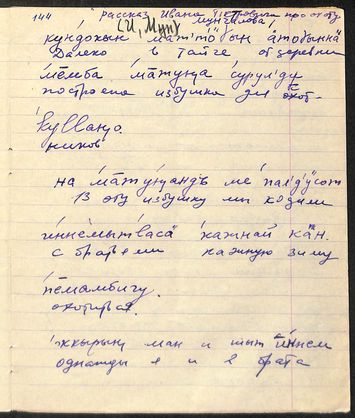 144 "рассказ Ивана Петровича про охоту
(И. Мунгалова)
кундокын матто̄ын а̄то̄ынна̄
Далеко в тайге от деревни
мемба мāтунга сурулʼдʼи
построена избушка для охот-
куввандо.
ников
на мāтунгандъ ме палʼдʼӱсот
в эту избушку мы ходили
иннемытвасӓ кажнай кан.
с братьями каждую зиму
пемамбигу.
охотиться.
оккырың ман и шыт ӣннем
однажды я и 2 брата